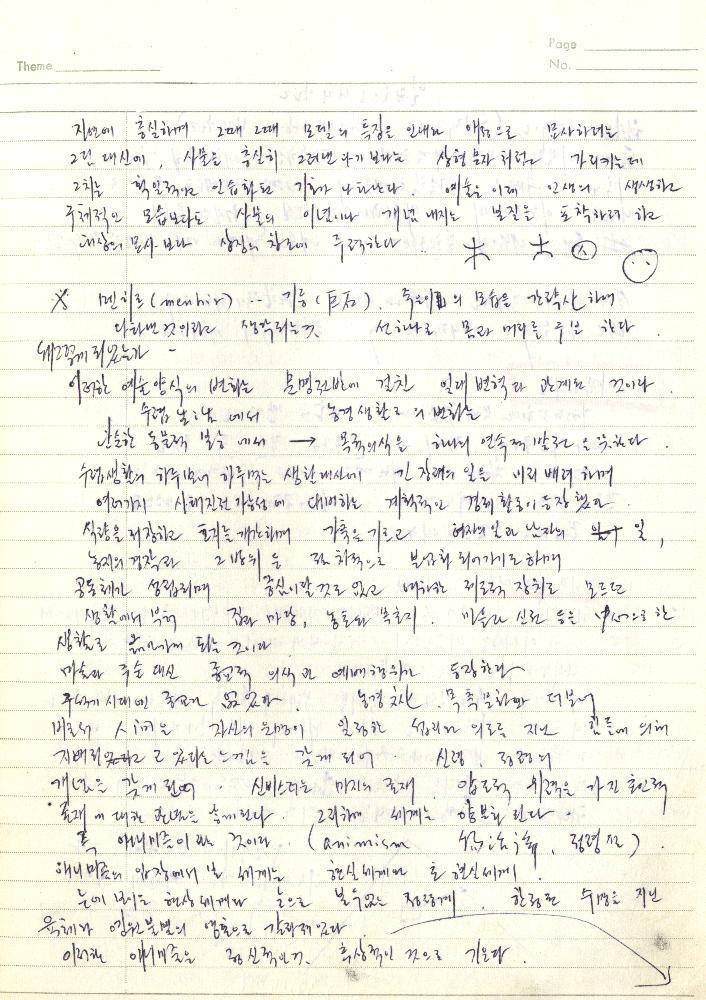 Page
Theme
No.
자연에 충실하며 그때 그때 모델의 특징을 인내와 애정으로 묘사하려는
그런 대신에, 사물을 충실히 그려낸다기 보다는 상형문자처럼 가리키는데
그치는 획일적이고 인습화된 기호가 나타난다. 예술은 이제 인생의 생생하고
구체적인 모습보다도 사물의 이념이나 개념 내지는 본질을 포착하려 하고
대상의 묘사보다 상징의 창조에 주력한다
※ 멘히르(menhir) ‥ 기둥(巨石). 죽은이의 모습을 간략화하여
나타낸것이라고 생각되는것 선하나로 몸과 머리를 구분 한다.
왜그렇게 되었는가 -
이러한 예술양식의 변화는 문명전반에 걸친 일대변혁과 관계된 것이다.
수렵 에서 농경생활로의 변화는
단순한 동물적 본능에서 → 목적의식을 하나의 연속적
수렵생활의 하루벌어 하루먹는 생활대신에 긴 장래의 일을 미리 배려하며
여러가지 사태진전가능성에 대비하는 계획적인 경제활동이 등장했고.
식량을 저장하고 토지를 개간하며 가축을 기르고 여자의 일과 남자의 일,
농지의 경작과 그 방위 등 점차적으로 분업화 되어가기도 하며
공동체가 성립되며 중심이랄것도 없고 제도적 장치도 모르던
생활에서 집과 마당, 농토와 목초지. 미술과 신전 등을 중심으로 한
생활로 옮아가게 되는 것이다
마술과 주술 대신 종교적 의식과 예배행위가 등장한다
구석기시대엔 종교가 없었다. 농경, 목축문화와 더불어
비로서 사람은 자신의 운명이 일정한 섭리와 의도를 지닌 힘들에 의해
지배되고 있다는 느낌을 갖게 되어 신령, 정령의
개념을 갖게 된다. 신비스러운 미지의 존재 압도적 위력을 가진 초인적
존재에 대한 관념도 숭배된다 그리하여 세계는 양분화 된다.
즉 애니미즘이라는 것이다.. (animism 정령교)
애니미즘의 입장에서 본 세계는 현실세계와 초현실세계,
눈에 보이는 현상세계와 눈으로 볼수없는 정령계. 한정된 수명을 지닌
육체와 영원불멸의 영혼으로 갈라져있다
이러한 애니미즘은 정신적인것. 추상적인 것으로 기운다.